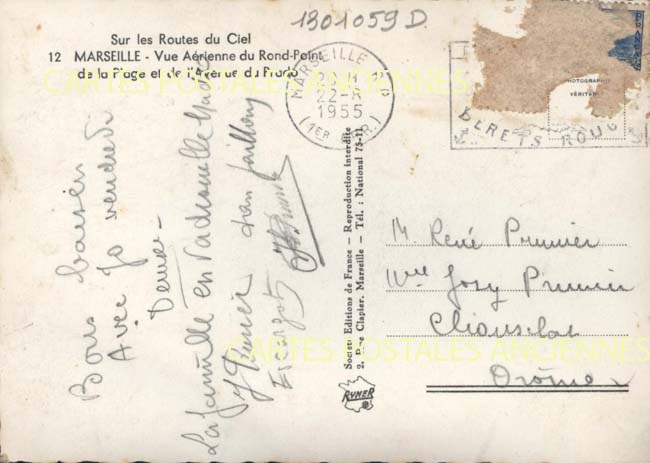 1301059 D.
Sur les Routes du Ciel
12 MARSEILLE - Vue Aérienne du Rond-Point
de la Plage et de l'Avenue du Prado
CARTES POSTALES ANCIENNES
MARSEILLE
22-X
1955
(1ER)
BERETS ROUG
PHOTOGRAPHIE
VÉRITABLE
Bons baisers
Avec Jo vendredi
La famille en vadrouille
Escargots
Societé Editions de France — Reproduction interdite
2, Rue Clapier, Marseille — Tél. : National 75-11
RYNER
M. René Prunier
Mlle Josy Prunier
Cliousclat
Drôme
CARTES POSTALES ANCIENNES